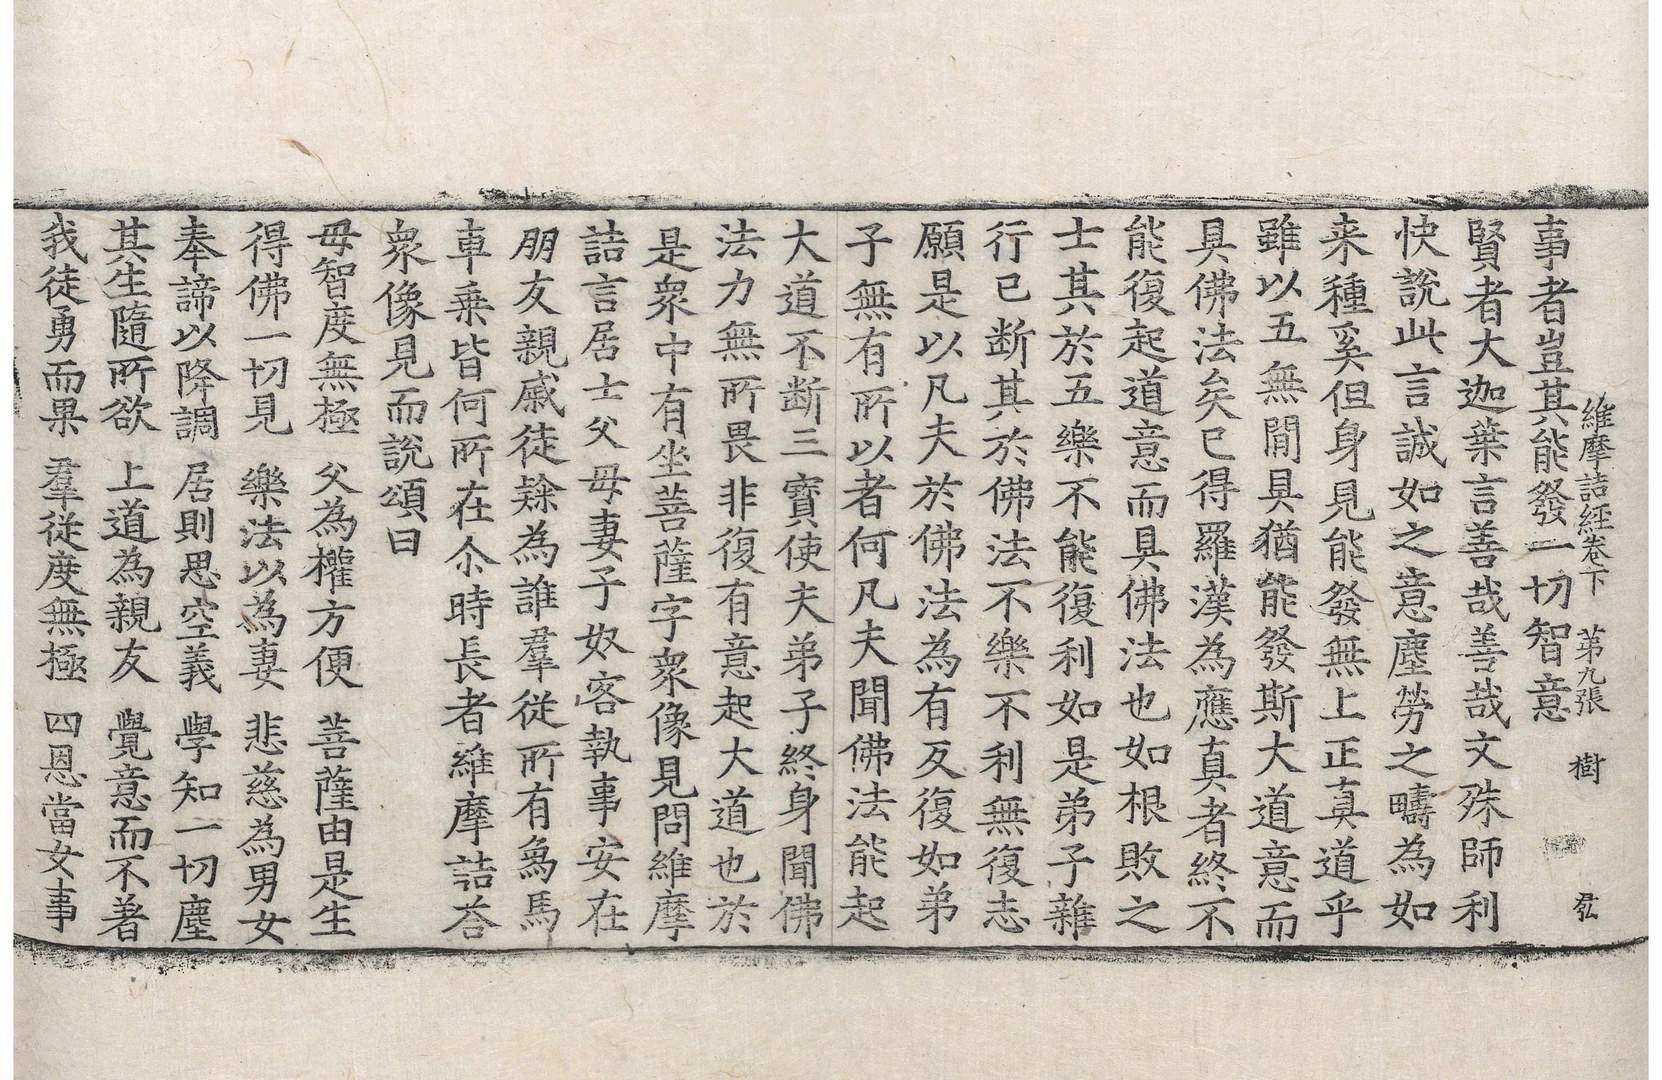 維摩詰經卷下 第九張 樹
事者豈其能發一切智意
賢者大迦葉言善哉善哉文殊師利
快說此言誠如之意塵勞之疇為如
来種奚但身見能發無上正真道乎
雖以五無閒具猶能發斯大道意而
具佛法矣已得羅漢為應真者終不
能復起道意而具佛法也如根敗之
士其於五樂不能復利如是弟子雜
行已断其於佛法不樂不利無復志
願是以凡夫於佛法為有反復如弟
子無有所以者何凡夫聞佛法能起
大道不断三寶使夫弟子終身聞佛
法力無所畏非復有意起大道也於
是衆中有坐菩薩字衆像見問維摩
詰言居士父母妻子奴客執事安在
朋友親戚徒隸為誰羣從所有象馬
車乗皆何所在尒時長者維摩詰荅
衆像見而說頌曰
母智度無極 父為權方便 菩薩由是生
得佛一切見 樂法以為妻 悲慈為男女
奉諦以降調 居則思空義 學知一切塵
其生隨所欲 上道為親友 覺意而不著
我徒勇而果 羣從度無極 四恩當女事